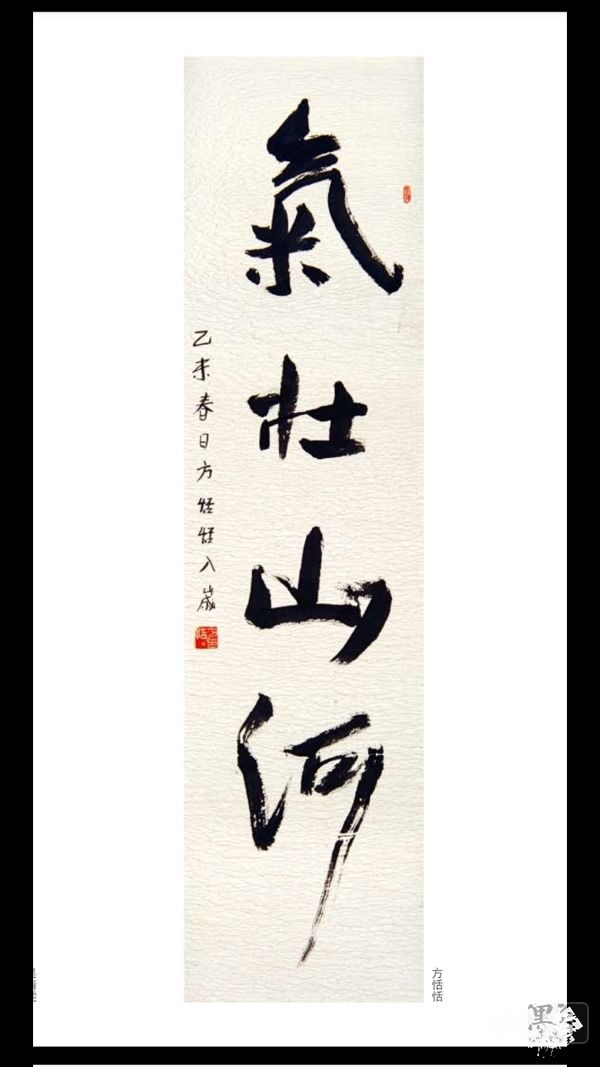 氣壯山河
乙未春日方恬恬八歲
方恬恬